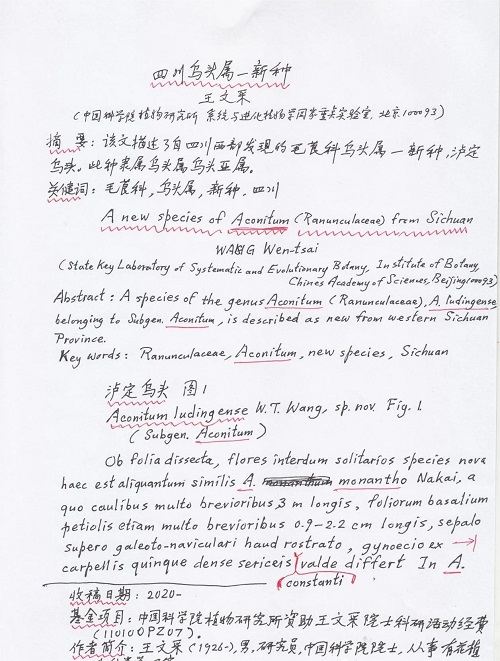 四川乌头属一新种
王文采
(中国科学院植物研究所 系统与进化植物学国家重点实验室, 北京100093)
摘 要: 该文描述了自四川西部发现的毛茛科乌头属一新种, 泸定
乌头。此种隶属乌头属乌头亚属。
关键词: 毛茛科, 乌头属, 新种, 四川
A new species of Aconitum (Ranunculaceae) from Sichuan
WANG Wen-tsai
(State Key Laboratory of Systematic and Evolutionary Botany, Institute of Botany,
Chines Academy of Sciences, Beijing100093)
Abstract: A species of the genus Aconitum (Ranunculaceae), A. ludingense,
belonging to Subgen. Aconitum, is described as new from western Sichuan
Province.
Key words: Ranunculaceae, Aconitum, new species, Sichuan
泸定乌头 图1
Aconitum ludingense W.T. Wang, sp. nov. Fig. 1
(Subgen. Aconitum)
Ob folia dissecta, flores interdum solitarios species nova
haec est aliquantum similis A. monantho Nakai, a
quo caulibus multo brevioribus 3 m longis, foliorum basalium
petiolis etiam multo brevioribus 0.9-2.2 cm longis, sepalo
supero galeato-naviculari haud rostrato, gynoecio ex
carpellis quinque dense sericeis valde differt In A.
constanti
收稿日期: 2020-
基金项目: 中国科学院植物研究所资助王文采院士科研活动经费
(110100PZ07).
作者简介: 王文采(1926-), 男, 研究员, 中国科学院院士, 从事有花植